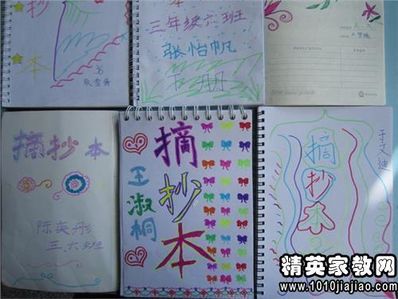 摘
抄
本
三年级六班
张怡帆
摘抄本
陈奕彤
三、六班
摘
抄
本
王
淑
桐
摘
抄
本
精英家教网
www.1010jiajiao.com